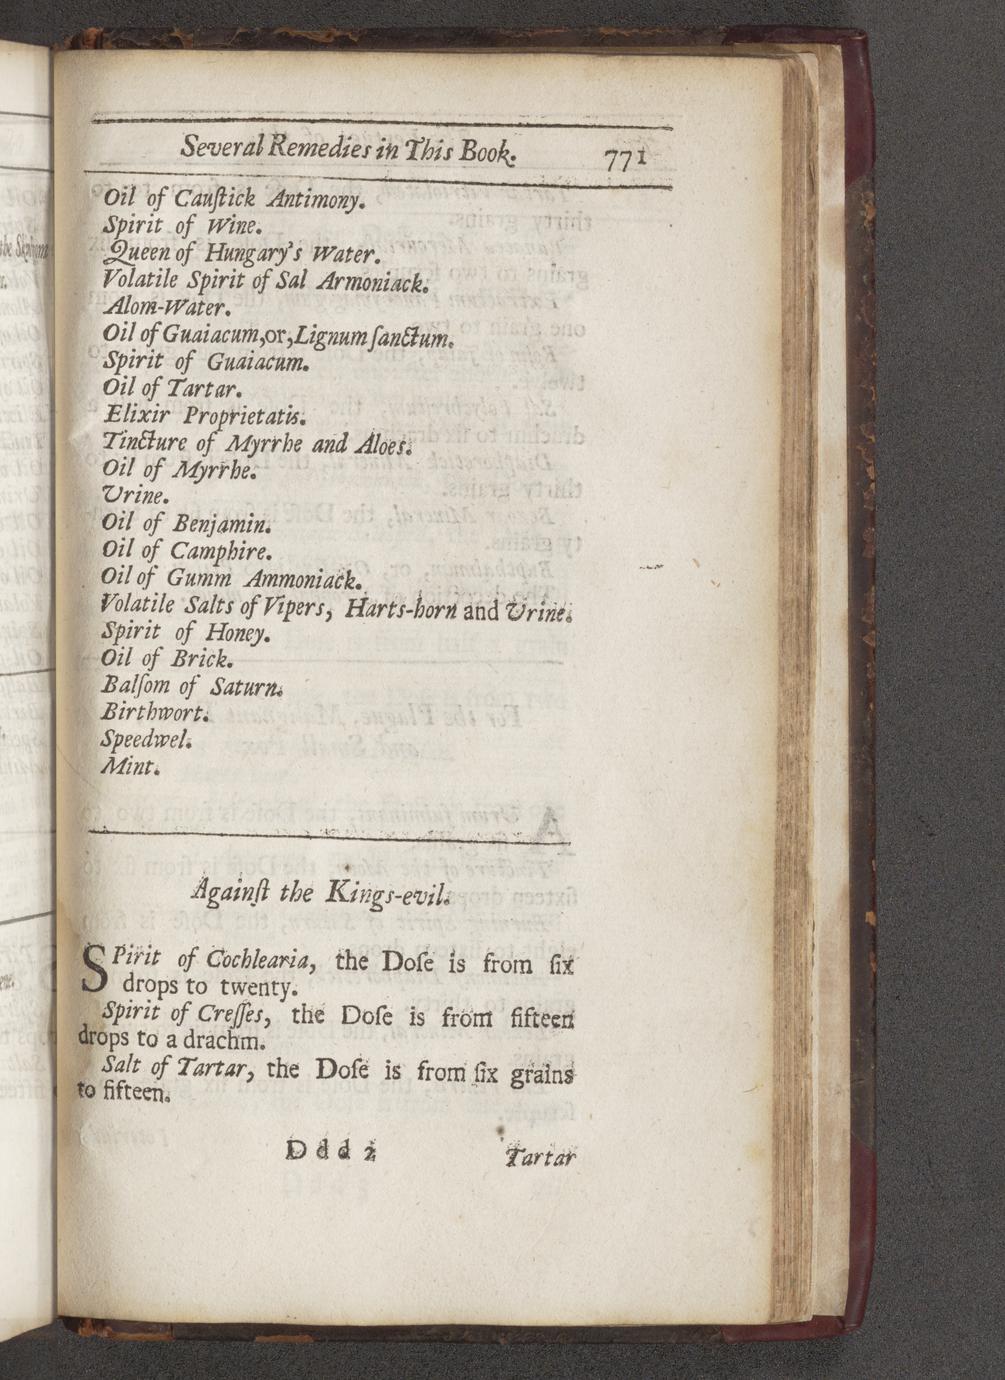 Several Remedies in This Book. 771
Oil of Cauſtick Antimony.
Spirit of Wine.
Queen of Hungary's Water.
Volatile Spirit of Sal Armoniack.
Alom-Water.
Oil of Guaiacum, or, Lignum ſanctum.
Spirit of Guaiacum.
Oil of Tartar.
Elixir Proprietatis.
Tincture of Myrrhe and Aloes.
Oil of Myrrhe.
Urine.
Oil of Benjamin.
Oil of Camphire.
Oil of Gumm Ammoniack.
Volatile Salts of Vipers, Harts-horn and Urine.
Spirit of Honey.
Oil of Brick.
Balſom of Saturn.
Birthwort.
Speedwel.
Mint.
Againſt the Kings-evil.
SPirit of Cochlearia, the Doſe is from ſix
drops to twenty.
Spirit of Creſſes, the Doſe is from fifteen
drops to a drachm.
Salt of Tartar, the Doſe is from ſix grains
to fifteen.
Ddd 2 Tartar